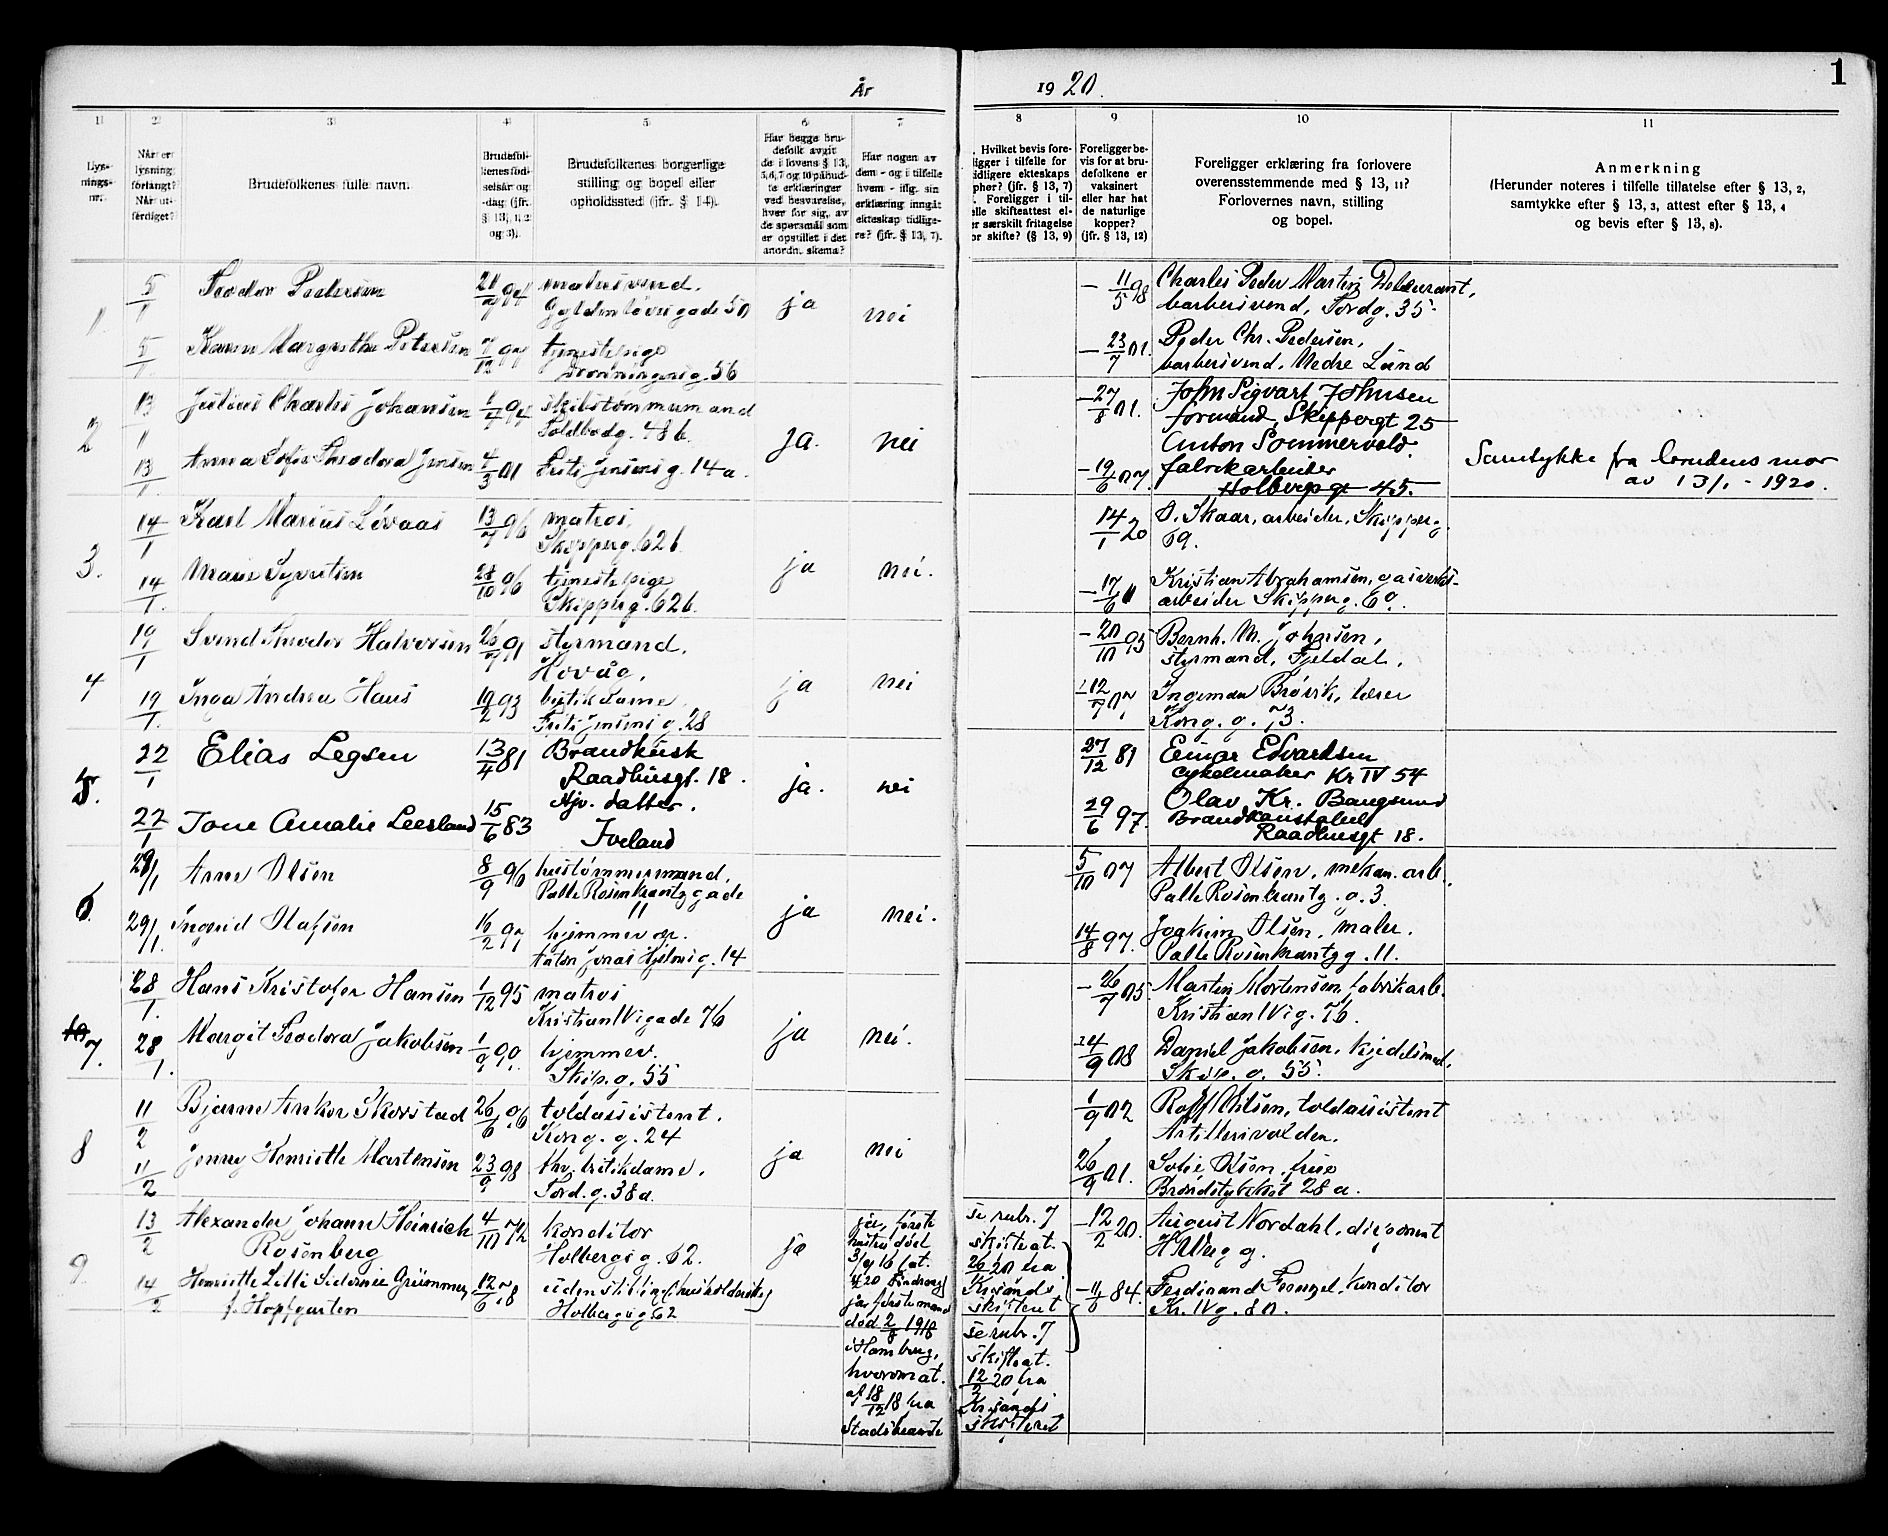 År
19 20.
1
1
2
3
4
5
6
7
8
9
10
11
Lys-
nings-
nr.
Når er
lysning
forlangt?
Når ut-
ferdiget?
Brudefolkenes fulle navn.
Brudefol-
kenes fød-
selsår og
-dag (jfr.
§ 13, 1, 2
og 3).
Brudefolkenes borgerlige
stilling og bopel eller
opholdssted (jfr. § 14).
Har begge bru-
defolk avgit
de i lovens § 13,
5, 6, 7 og 10 påbud-
te erklæringer
ved besvarelse,
hver for sig, av
de spørsmål som
er opstillet i det
anordn. skema?
Har nogen av
dem - og i tilfelle
hvem - iflg. sin
erklæring inngåt
ekteskap tidlige-
re? (jfr. § 13, 7).
Hvilket bevis fore-
ligger i tilfelle for
tidligere ekteskaps
ophør? (jfr. § 13, 7)
Foreligger i til-
felle skifteattest el-
ler særskilt fritagelse
for skifte? (§ 13, 9)
Foreligger be-
vis for at bru-
defolkene er
vaksinert
eller har hat
de naturlige
kopper?
(jfr. § 13, 12)
Foreligger erklæring fra forlovere
overensstemmende med § 13, 11?
Forlovernes navn, stilling
og bopel.
Anmerkning
(Herunder noteres i tilfelle tillatelse efter § 13, 2,
samtykke efter § 13, 3, attest efter § 13, 4
og bevis efter § 13, 8).
1. 5/1 Teodor Pedersen
Gyldenløvesgade 50
ja nei
- 11/5 98 Charles Peder Martin
barbersvend, Tordg. 35.
5/1. Karen Margrethe Petersen tjenestepige
Dronningensg. 56
- 23/7 01. Peder Chr. Pedersen,
barbersvend, Nedre Lund
2 13/1 Julius Charles Johansen 1/4 94 skibstømmermand
Toldbodg. 48b.
ja. nei
- 27/8 01. John Sigvart Johnsen
formand, Skippergt 25
13/1. Anna Sofie Theodora Jensen 4/3 01 Frits Jensensg. 14a.
- 19/6 07. Anton Sommervold.
fabrikarbeider
Holbergsgt 45.
Samtykke fra brudens mor
av 13/1 - 1920.
3. 14/1 Karl Marius Løvaas 13/7 96 matros,
Skipperg. 62b.
ja nei.
14/1 20 O. Skaar, arbeider, Skipperg.
69.
14/1. Marie Syvertsen 28/10 96 tjenestepige
Skipperg. 62b.
- 17/6 11 Kristian Abrahamsen, gasverks-
arbeider Skipperg. 60.
4 19/1 Svend Theodor Halvorsen 26/7 91 styrmand,
Hovåg.
ja nei
- 20/10 95 Bernh. M. Johansen,
styrmand, Fjeldal.
19/1. Inga Andrea Haus 19/2 93
Frits Jensensg. 28
12/7 07 Ingeman Brøvik, lærer
Kong. g. 73.
5. 22/1 Elias Legsen 13/4 81 Brandkusk
Raadhusgt. 18.
ja. nei
27/12 81 Einar Edvardsen
cykelmaker Kr IV 54
22/1 Tone Amalie Leesland 15/6 83 Hjv. datter.
Iveland
29/6 97. Olav Kr. Baugsund
Brandkonstabel
Raadhusgt 18.
6. 29/1 Arne Olsen 8/9 96 hustømmermand,
Palle Rosenkrantz gade
11
ja nei.
5/10 07 Albert Olsen, mekan. arb.
Palle Rosenkrantzg. 3.
29/1. Ingrid Olafsen 16/2 97 hjemmev.
Anton Jonas Hjelmsg. 14
14/8 97. Joakim Olsen, maler.
Palle Rosenkrantzg. 11.
7. 28/1. Hans Kristofer Hansen 1/12 95 matros
Kristian IV gade 76
ja nei.
- 26/7 05. Martin Mortensen, fabrikarb.
Kristian IV g. 76.
28/1. Margit Teodora Jakobsen 1/9 90. hjemmev.
Skip. g. 55
24/9 08 Daniel Jakobsen, kjedelsmed,
Skip. g. 55.
8 11/2 Bjarne Anker Skorstad 26/6 96 toldassistent.
Kong. g. 24
ja nei
1/9 02 Rolf Nilsen, toldassistent
Artillerivolden.
11/2 Jenny Henriette Martensen 23/9 98 butikdame.
Tord. g. 38a.
26/9 01. Sofie Olsen, frue
28a.
9. 13/2 Alexander Johann Heinrich
Rosenberg
4/10 72 konditor
Holbergsg. 62.
ja
ja, første
hustru død
3/9 16 
se rubr. 7
skifteat.
26/1 20 fra
Kr.sands
skifteret
- 12/2 20. August Nordahl,
Holbergg.
14/2 Henriette Lilli Sidonie Grümmer,
f. Hopfgarten
12/6 78 uden stilling (husholderske)
Holbergsg 62
ja første mand
død 2/8 1918
i Hamburg,
hvorom at.
af 18/12 18 fra
Stadsbeamte
se rubr. 7
skifteat.
12/2 20 fra
Kr.sands
skifteret
- 11/6 84. Ferdinand Frenzel, konditor
Kr. IV g. 80.